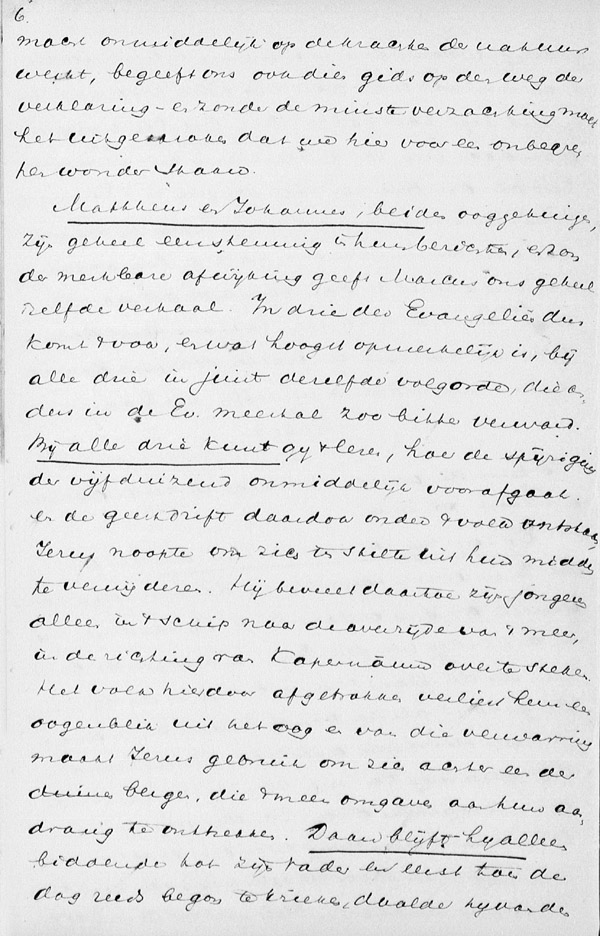 6.
macht onmiddelijk op de krachten der natuur
werkt, begeeft ons ook die gids op den weg der
verklaring – en zonder de minste verzachting moet
het uitgesproken dat we hier voor een onbegre
pen wonder staan.
Mattheus en Johannes, beiden ooggetuigen,
zijn geheel eenstemmig in hun berichten, en zon
der merkbare afwijking geeft Marcus ons geheel
't zelfde verhaal. In drie der Evangeliën dus
komt 't voor, en wat hoogst opmerkelijk is, bij
alle drie in juist dezelfde volgorde, die an
ders in de Ev. meestal zoo bitter verward.
Bij alle drie kunt gy 't lezen, hoe de spijziging
der vijfduizend onmiddelijk voorafgaat.
en de geestdrift daardoor onder 't volk ontstaan,
Jezus noopte om zich in stilte uit hun midden
te verwijderen. Hij beveelt daartoe zijn jongeren
alleen in 't schip naar de overzijde van 't meer,
in de richting van Kapernaüm over te steken.
Het volk hierdoor afgetrokken verliest hem een
oogenblik uit het oog en van die verwarring
maakt Jezus gebruik om zich achter een der
duine bergen, die 't meer omgaven aan hun aan
drang te onttrekken. Daar blijft hy alleen
biddende tot zijn Vader en eerst toen de
dag reeds begon te krieken, daalde hy van den